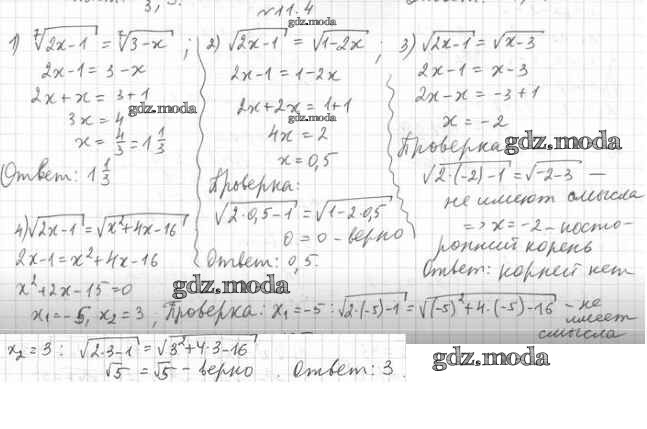 №11.4
gdz.moda
1) ⁷√(2x-1) = ⁷√(3-x) ;
2x-1 = 3-x
2x+x = 3+1
3x = 4
gdz.moda
x = 4/3 = 1 1/3
Ответ: 1 1/3
2) √(2x-1) = √(1-2x) ;
2x-1 = 1-2x
2x+2x = 1+1
gdz.moda
4x = 2
x = 0,5
Проверка:
√(2·0,5-1) = √(1-2·0,5)
0 = 0 - верно
Ответ: 0,5.
3) √(2x-1) = √(x-3)
2x-1 = x-3
2x-x = -3+1
x = -2
Проверка
gdz.moda
√(2·(-2)-1) = √(-2-3) —
не имеют смысла
=> x = -2 - посто-
ронний корень
Ответ: корней нет
4) √(2x-1) = √(x²+4x-16)
2x-1 = x²+4x-16
x²+2x-15=0
gdz.moda
x₁=-5, x₂=3, Проверка: x₁=-5: √(2·(-5)-1) = √((-5)²+4·(-5)-16) - не
имеет
смысла
x₂=3: √(2·3-1) = √(3²+4·3-16)
√5 = √5 - верно. Ответ: 3.
gdz.moda